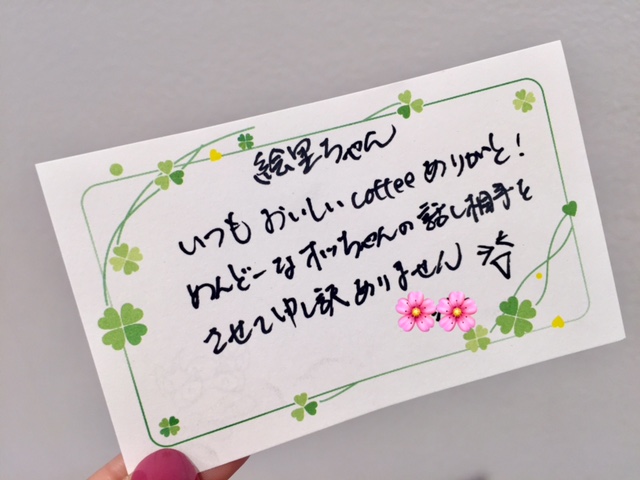 絵里ちゃん
いつも おいしい coffee ありがと!
めんどーなオッちゃんの話し相手を
させて申し訳ありません